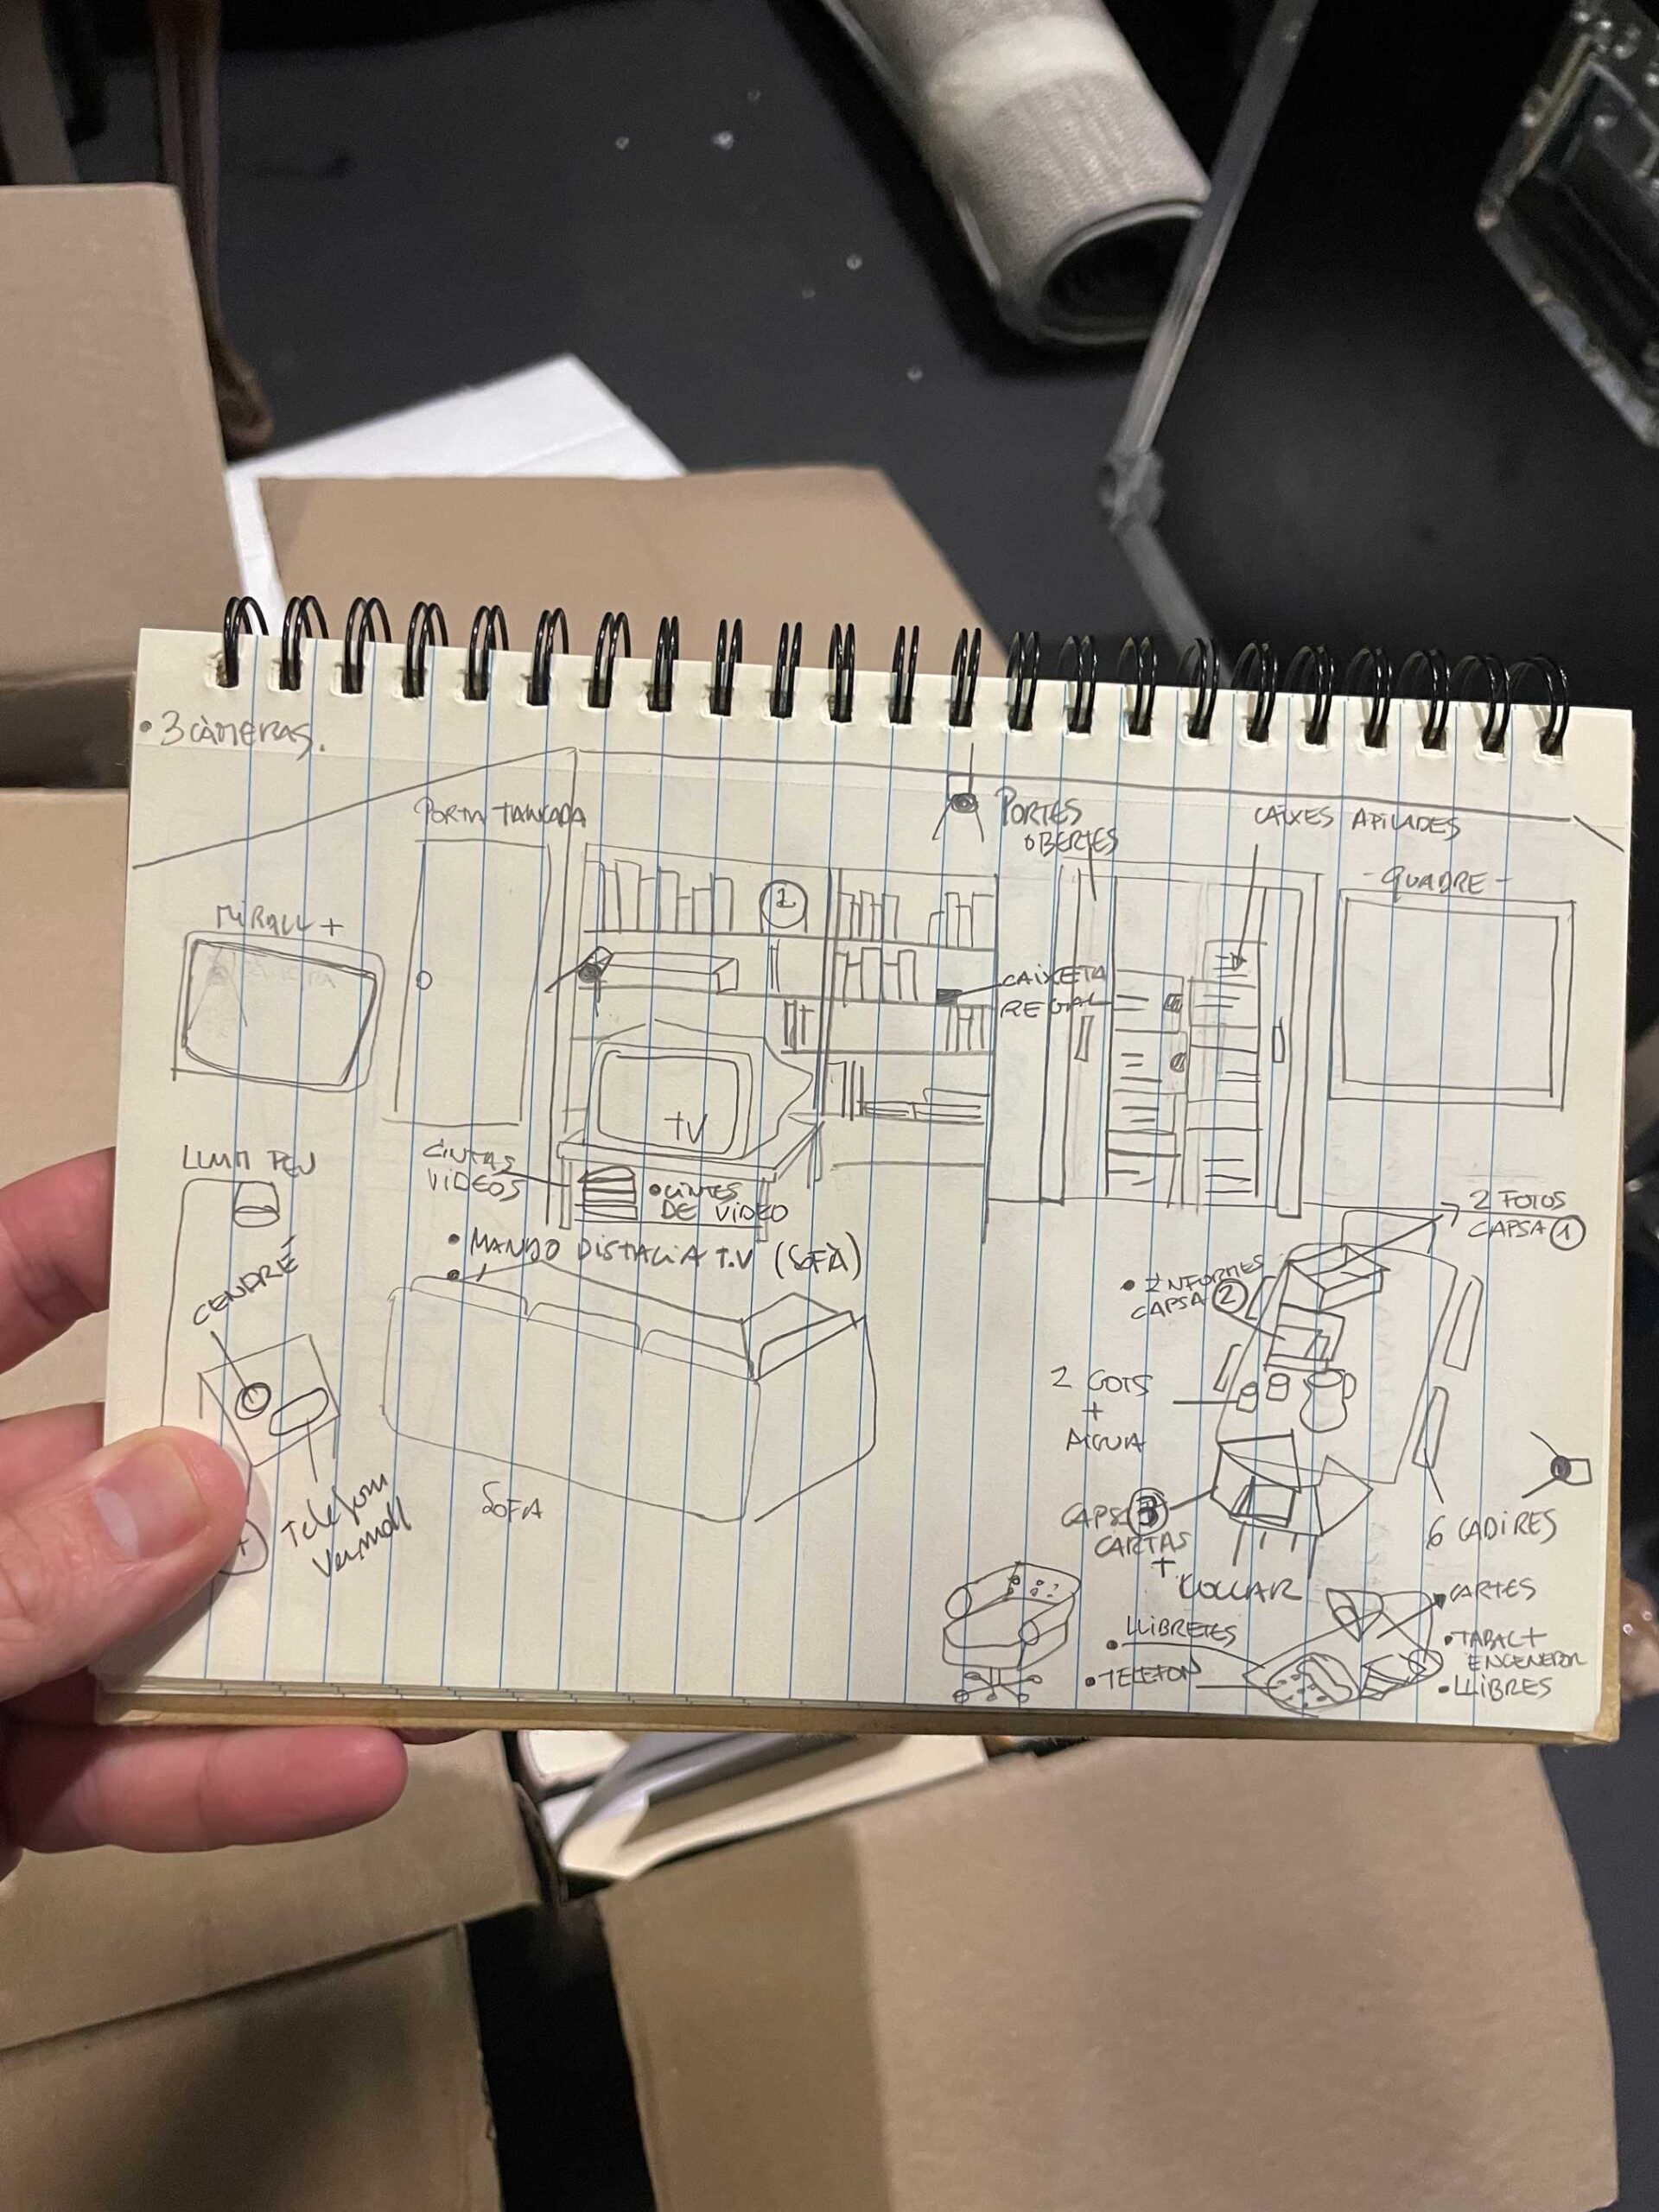 • 3 CÀMERAS.
PORTA TANCADA
PORTES
OBERTES
CAIXES APILADES
- QUADRE -
MIRALL +
1
CAIXETA
REGAL
TV
LLUM PEU
CINTAS
VIDEOS
• CINTES
DE VIDEO
• MANDO DISTACIA T.V (SOFÀ)
CENDRÉ
2 FOTOS
CAPSA 1
• INFORMES
CAPSA 2
2 GOTS
+
AIGUA
SOFA
Telefon
Vermell
CAPSA 3
CARTAS
+
COLLAR
6 CADIRES
CARTES
• LLIBRETES
• TELEFON
• TABAC +
ENCENEDOR
• LLIBRES